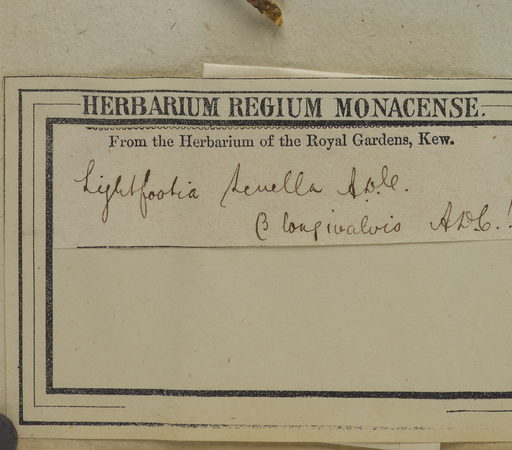 HERBARIUM REGIUM MONACENSE.
From the Herbarium of the Royal Gardens, Kew.
Lightfootia tenella A.D.C.
β longivalvis A.D.C.!